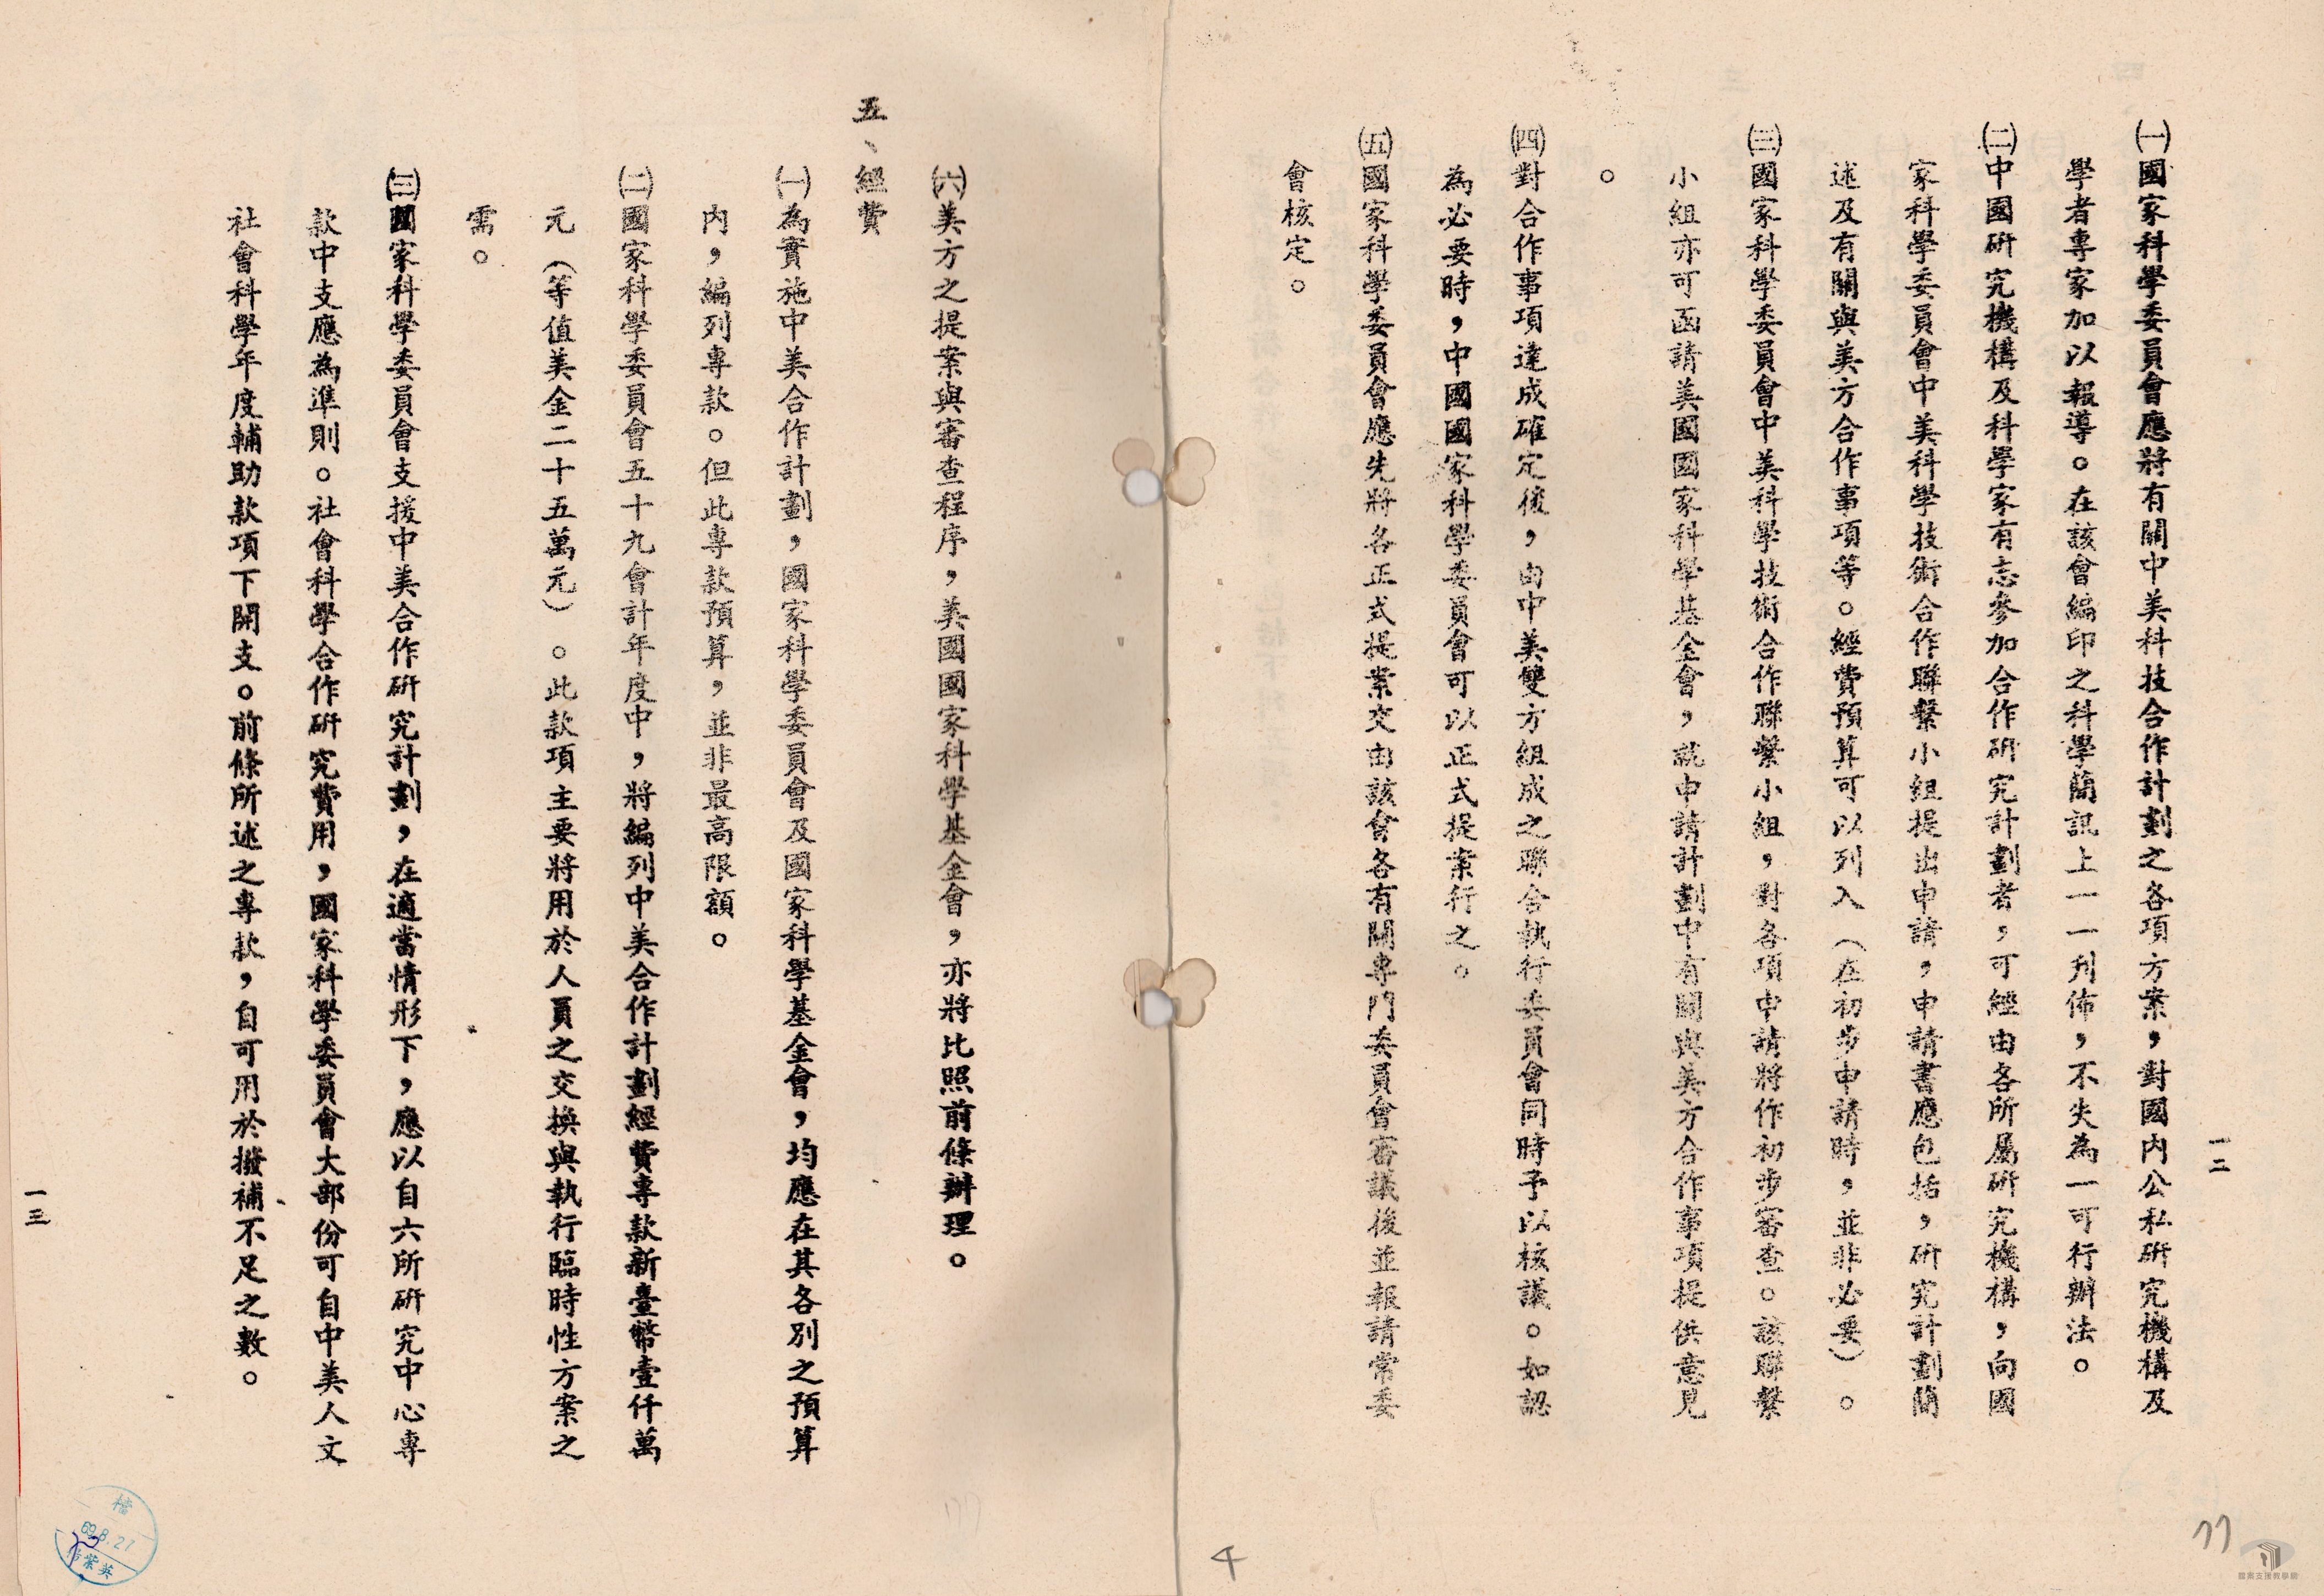 一二
㈠國家科學委員會應將有關中美科技合作計劃之各項方案，對國內公私研究機構及
學者專家加以報導。在該會編印之科學簡訊上一一刊佈，不失為一可行辦法。
㈡中國研究機構及科學家有志參加合作研究計劃者，可經由各所屬研究機構，向國
家科學委員會中美科學技術合作聯繫小組提出申請，申請書應包括，研究計劃簡
述及有關與美方合作事項等。經費預算可以列入（在初步申請時，並非必要）。
㈢國家科學委員會中美科學技術合作聯繫小組，對各項申請將作初步審查。該聯繫
小組亦可函請美國國家科學基金會，就申請計劃中有關與美方合作事項提供意見
。
㈣對合作事項達成確定後，由中美雙方組成之聯合執行委員會同時予以核議。如認
為必要時，中國國家科學委員會可以正式提案行之。
㈤國家科學委員會應先將各正式提案交由該會各有關專門委員會審議後並報請常委
會核定。
㈥美方之提案與審查程序，美國國家科學基金會，亦將比照前條辦理。
五、經費
㈠為實施中美合作計劃，國家科學委員會及國家科學基金會，均應在其各別之預算
內，編列專款。但此專款預算，並非最高限額。
㈡國家科學委員會五十九會計年度中，將編列中美合作計劃經費專款新臺幣壹仟萬
元（等值美金二十五萬元）。此款項主要將用於人員之交換與執行臨時性方案之
需。
㈢國家科學委員會支援中美合作研究計劃，在適當情形下，應以自六所研究中心專
款中支應為準則。社會科學合作研究費用，國家科學委員會大部份可自中美人文
社會科學年度輔助款項下開支。前條所述之專款，自可用於撥補不足之數。
一三
檔
69.8.27
紫英
4
77
檔案支援教學網